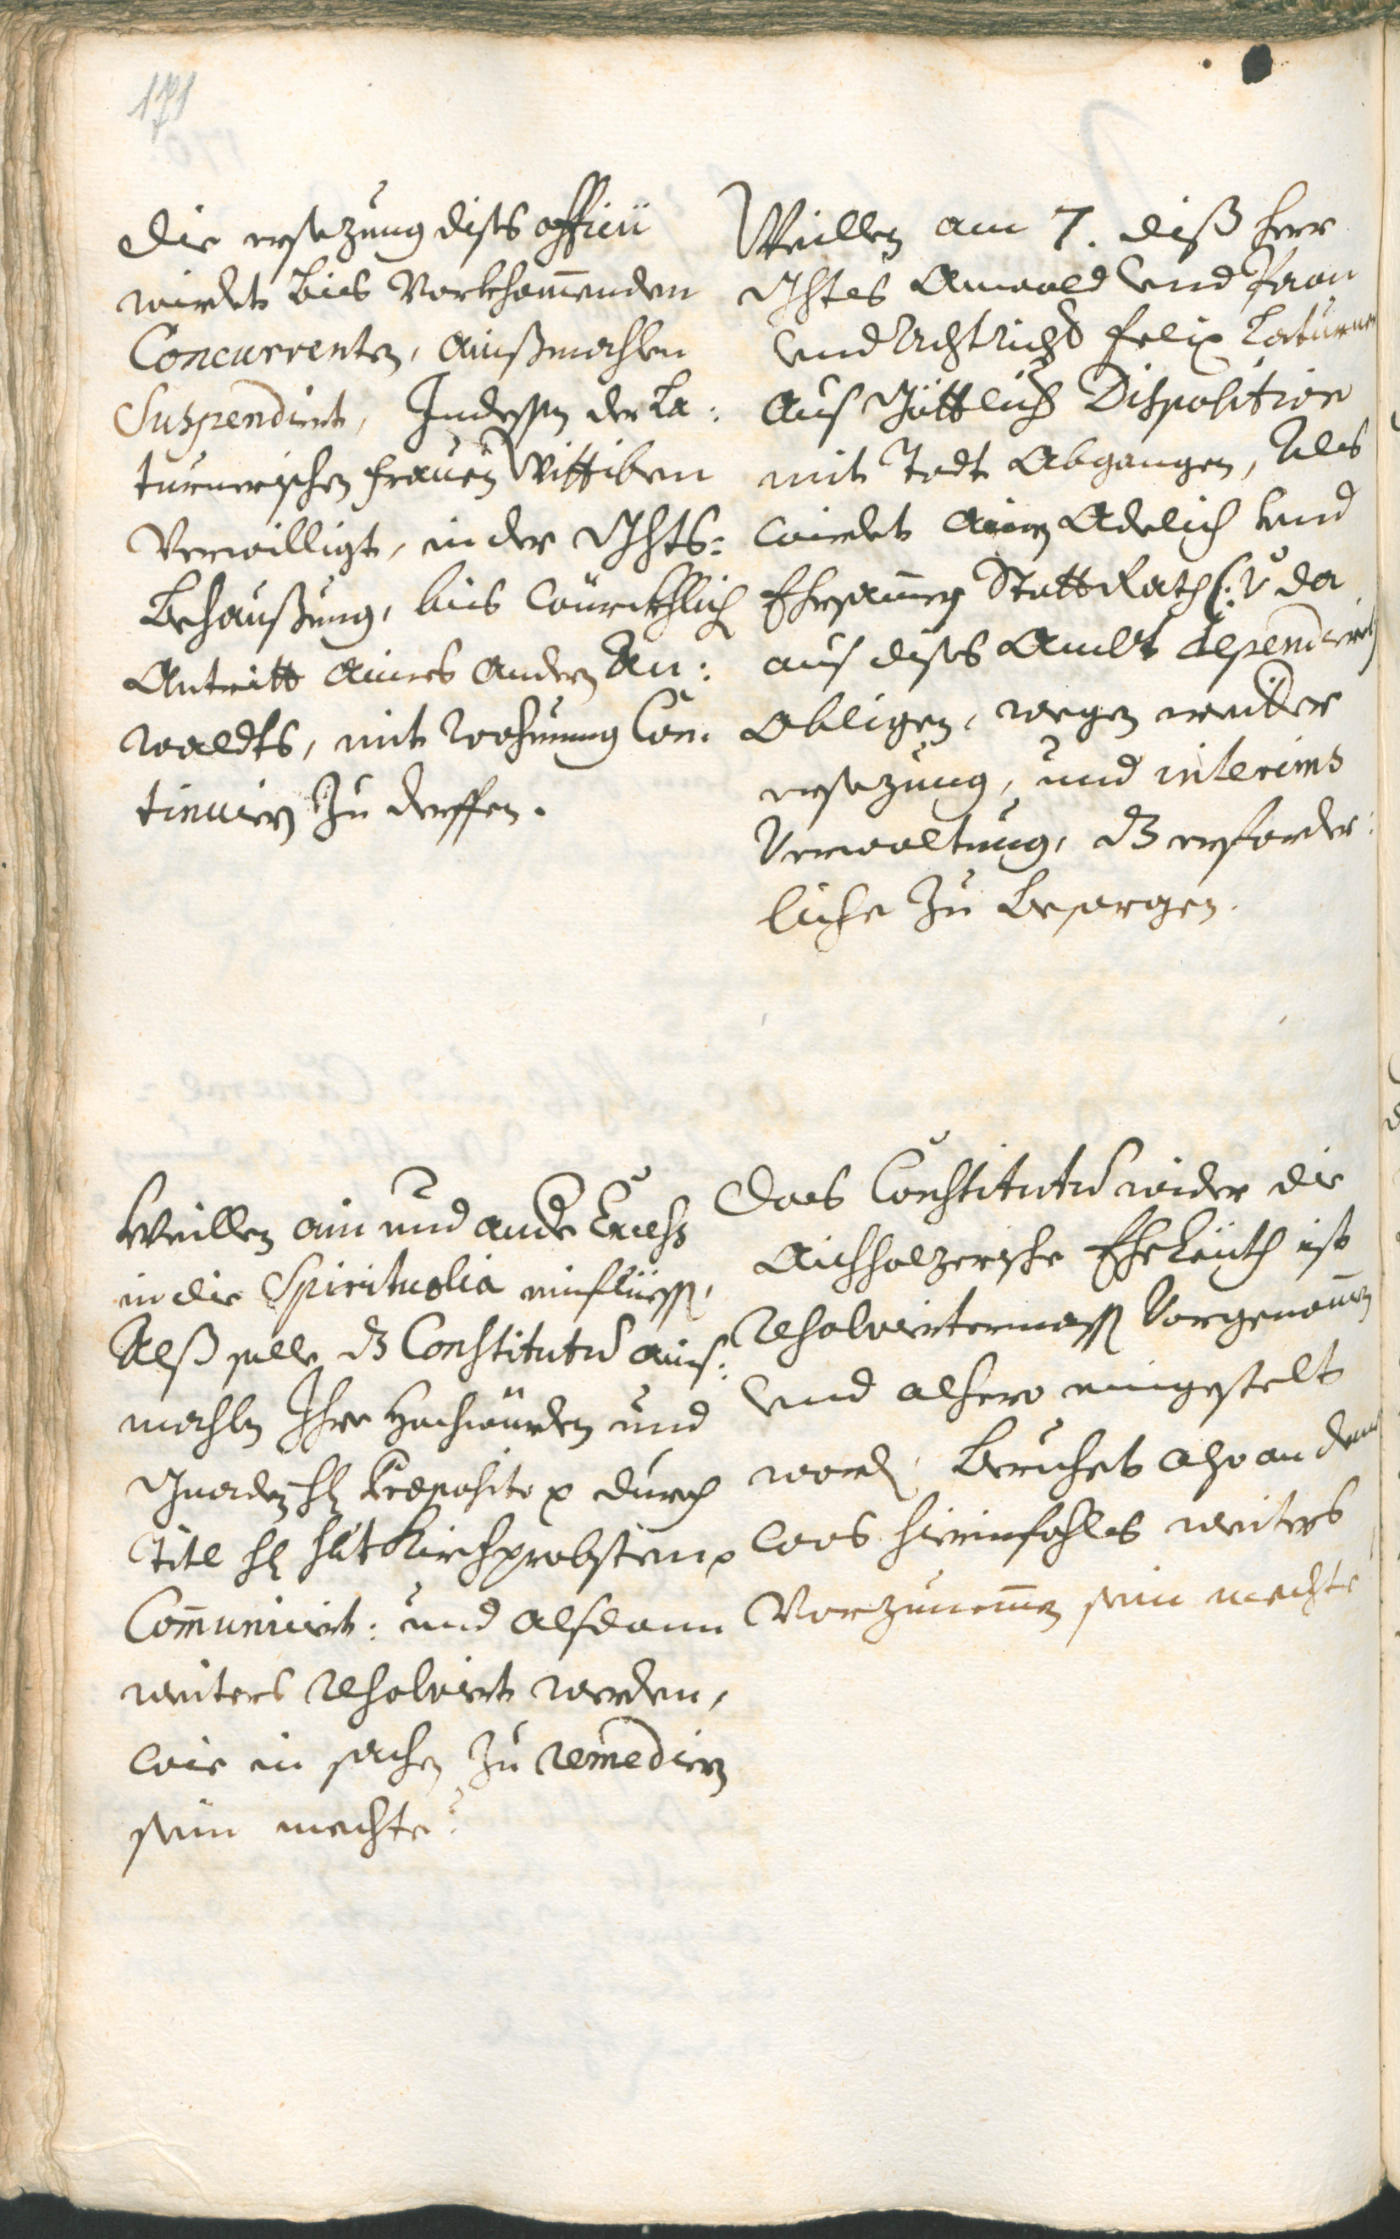 171
Die ersezung dises officii
wirdet bies Vorkhom̄enden
Concurrenten, ainßmahlen
Suspendiert, Indessen der La:
turnerischen frauen Wittiben
Verwilligt, in der Ghts:
Behaußung, bis würckhlich
Antritt aines Andern An:
waldts, mit wohnung Con:
tinuirn zu derffen.
Weillen am 7. diß herr
Ghts Anwald und
und felix Laturner
Aus Göttlich Disposition
mit Todt Abgangen, Als
wirdet ainem Adelich und
Ehrsamen Statt Rath
aus dises Ambt dependiert
Obligen, wegen weitter
ersezung, und interims
Verwaltung, dz erforder:
liche zu besorgen.
Weillen ain und ander Excess
in die Spiritualia einfliessen,
Alß solle dz Constitutum ains:
mahln Ihro Hochwürden und
Gnaden hl Præposito durch
Titl hl Kirchprobsten
Com̄uniciert: und alsdann
weiters resolviert werden,
wie in sachen zu remedirn
sein mechte?
Das Constitutum wider die
Aichholzerische Eheleuth ist
resolviertermassen Vorgenom̄en
und alhero eingestelt
worden, beruehet also an deme
was hierinfahls weiters
Vorzunem̄en sein mechte